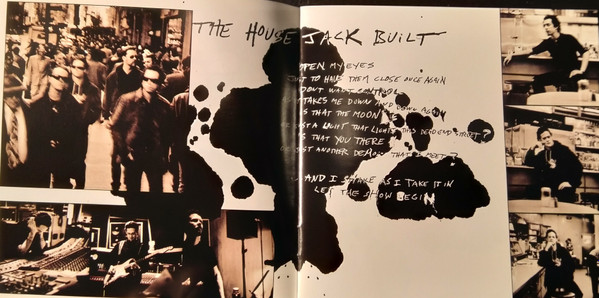 THE HOUSE JACK BUILT
OPEN MY EYES
JUST TO HAVE THEM CLOSE ONCE AGAIN
DON'T WANT CONTROL
TAKES ME DOWN AND DOWN AGAIN
IS THAT THE MOON
OR JUST A LIGHT THAT LIGHTS THIS DEAD END STREET?
IS THAT YOU THERE
OR JUST ANOTHER DEMON THAT I MEET?
AND I SHAKE AS I TAKE IT IN
LET THE SHOW BEGIN